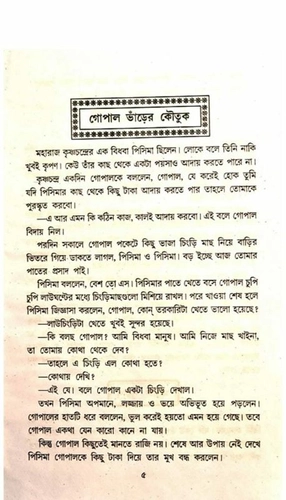 গোপাল ভাঁড়ের কৌতুক
মহারাজ কৃষ্ণচন্দ্রের এক বিধবা পিসিমা ছিলেন। লোকে বলে তিনি নাকি
খুবই কৃপণ। কেউ তাঁর কাছ থেকে একটা পয়সাও আদায় করতে পারে না।
কৃষ্ণচন্দ্র একদিন গোপালকে বললেন, গোপাল, যে করেই হোক তুমি
যদি পিসিমার কাছ থেকে কিছু টাকা আদায় করতে পার তাহলে তোমাকে
পুরস্কৃত করবো।
—এ আর এমন কি কঠিন কাজ, কালই আদায় করবো। এই বলে গোপাল
বিদায় নিল।
পরদিন সকালে গোপাল পকেটে কিছু ভাজা চিংড়ি মাছ নিয়ে বাড়ির
ভিতরে গিয়ে ডাকতে লাগল, পিসিমা ও পিসিমা। বড় ইচ্ছে আজ তোমার
পাতের প্রসাদ পাই।
পিসিমা বললেন, বেশ তো এস। পিসিমার পাতে খেতে বসে গোপাল চুপি
চুপি লাউঘন্টের মধ্যে চিংড়িমাছগুলো মিশিয়ে রাখল। পরে খাওয়া শেষ হলে
পিসিমা জিজ্ঞাসা করলেন, গোপাল, কোন্ তরকারিটা খেতে ভালো হয়েছে?
—লাউচিংড়িটা খেতে খুবই সুন্দর হয়েছে।
—কি বলছ গোপাল? আমি বিধবা মানুষ। আমি নিজে মাছ খাইনা,
তা তোমায় কোথা থেকে দেব?
—তাহলে এ চিংড়ি এল কোথা হতে?
—কোথায় দেখি?
—এই যে। বলে গোপাল একটা চিংড়ি দেখাল।
তখন পিসিমা অপমানে, লজ্জায় ও ভয়ে অভিভূত হয়ে পড়লেন।
গোপালের হাতটি ধরে বললেন, ভুল করেই হয়তো এমন হয়ে গেছে। তবে
গোপাল একথা যেন কারো কানে না যায়।
কিন্তু গোপাল কিছুতেই মানতে রাজি নয়। শেষে আর উপায় নেই দেখে
পিসিমা গোপালকে কিছু টাকা দিয়ে তার মুখ বন্ধ করলেন।
৫